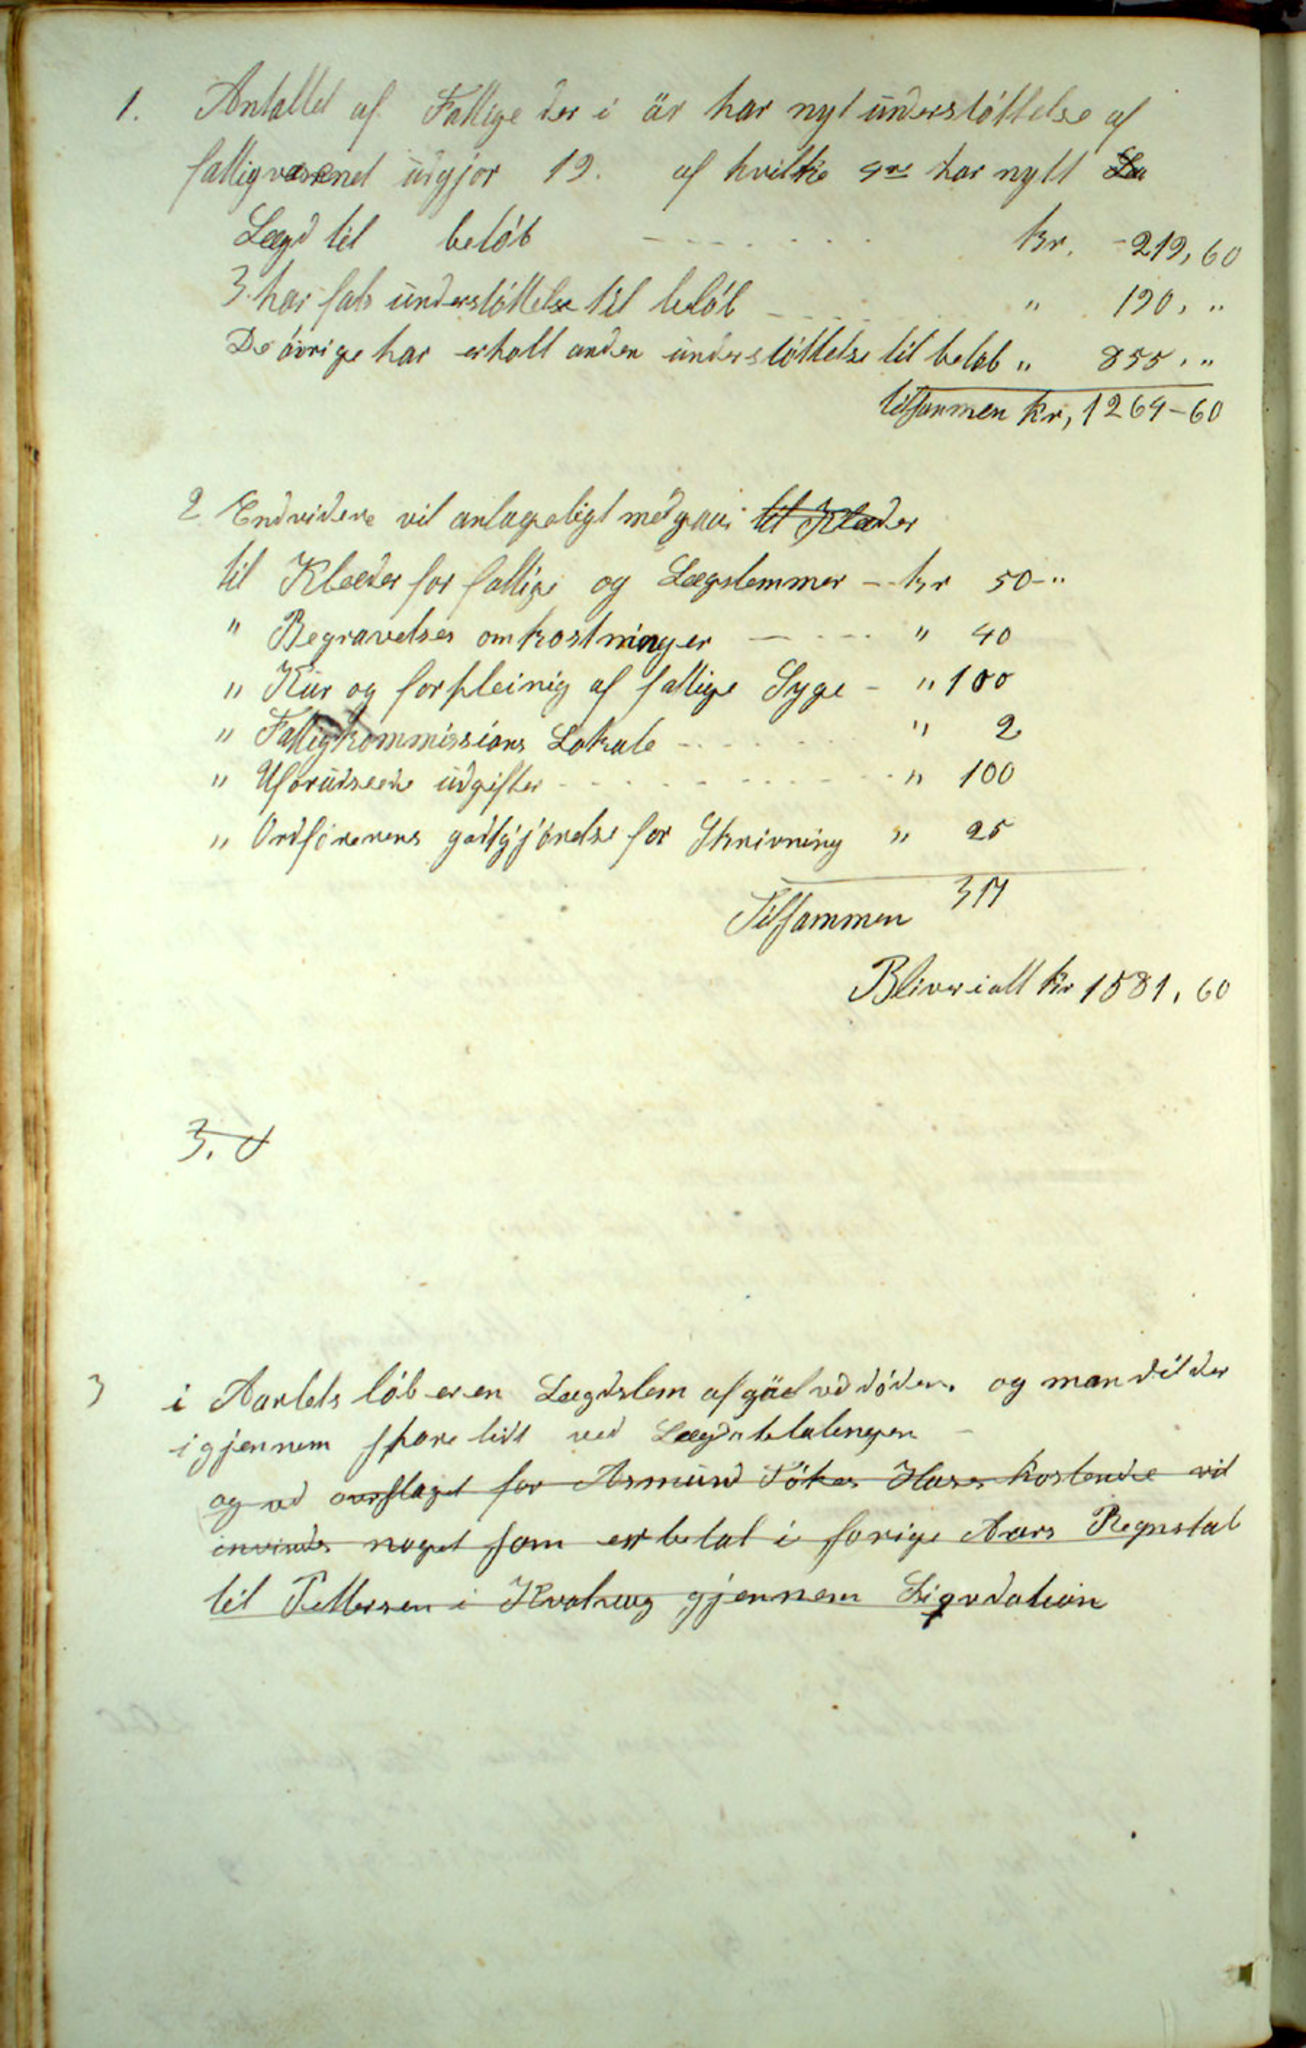 1. Antallet af Fattige der i år har nyt understøttelse af
fattigvæsenet udgjør 19. af hvilke 4re har nytt La
Lægd til beløb - - - - - - kr. - 219,60
3. har fatt understøttelse til beløb - - - - " 190, "
De øvrige har erholt anden understøttelse til beløb " 855, "
tilsammen kr, 1264-60
2 Endvidere vil antageligt medgaa til Klæder
til Klæder for fattige og Lægslemmer - kr 50-"
" Begravelses omkostninger - - - - " 40
" Kur og forpleinig af fattige Syge - " 100
" Fattigkommissions Lokale - - - - - " 2
" Uforudseede udgifter - - - - - - - " 100
" Ordførerens godtgjørelse for Skrivning " 25
Tilsammen 317
Bliver i alt kr 1581,60
3. d
3 i Aarlets løb er en Lægdslem afgået ved døden. og man vil der
igjennem spare lidt ved Lægdsbetalingen -
og ved overslaget for Asmund Hus kostende vil
invindes noget som er betal i forige Aars Regnskab
til Pettersen i gjennem Liqvdation